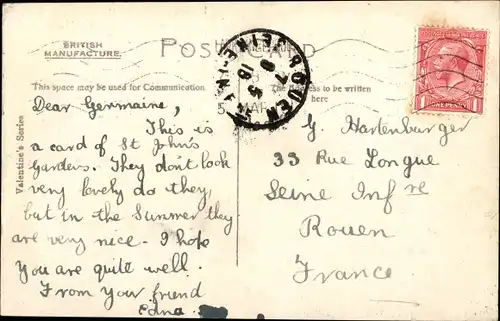 BRITISH
MANUFACTURE.
POST
This space may be used for Communication
The Address to be written
here
Valentine's Series
Dear Germaine,
This is
a card of St John's
Gardens. They don't look
very lovely do they,
but in the Summer they
are very nice. I hope
you are quite well.
From your friend
Edna
G. Hartenburger
33 Rue Longue
Seine Infre
Rouen
France
ROUEN
ONE PENNY